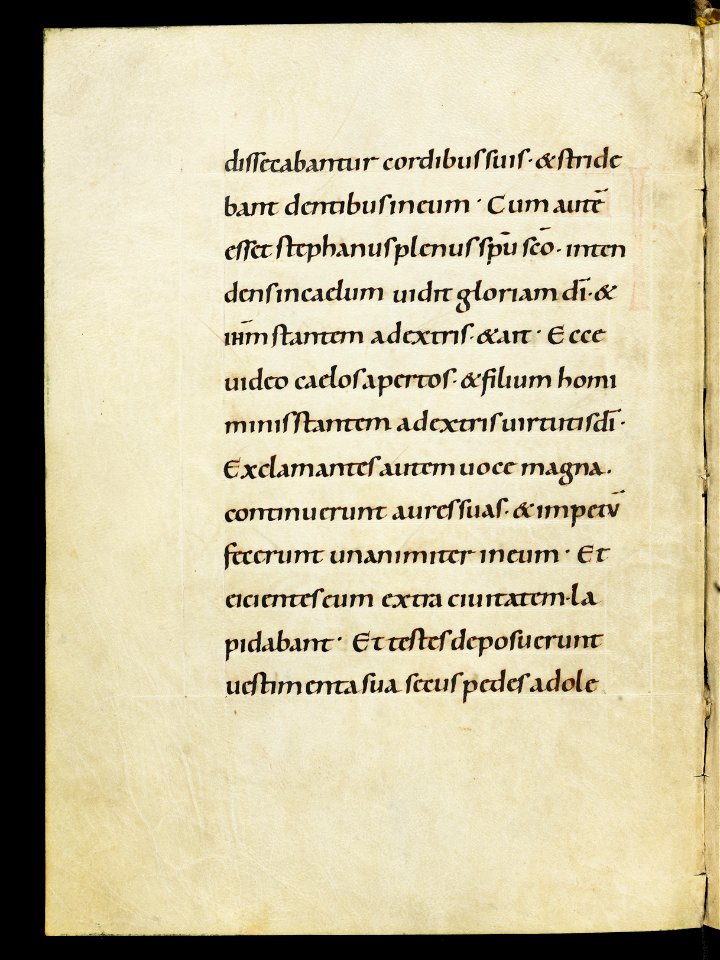 dissecabantur cordibus suis · & stride
bant dentibus in eum · Cum autē
esset stephanus plenus spū scō · inten
dens in caelum uidit gloriam dī · &
ihm̄ stantem a dextris · & ait · Ecce
uideo caelos apertos · & filium homi
minis stantem a dextris uirtutis dī ·
Exclamantes autem uoce magna ·
continuerunt aures suas · & impetū
fecerunt unanimiter in eum · Et
eicientes eum extra ciuitatem · la
pidabant · Et testes deposuerunt
uestimenta sua secus pedes adole